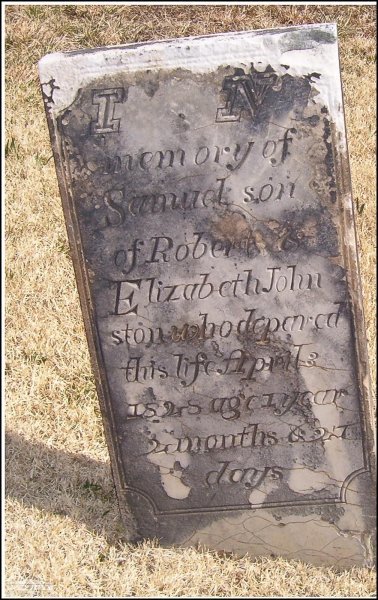 IN
memory of
Samuel son
of Robert &
Elizabeth John
ston who depared
this life April
1828 age 1 year
2 months & 21
days